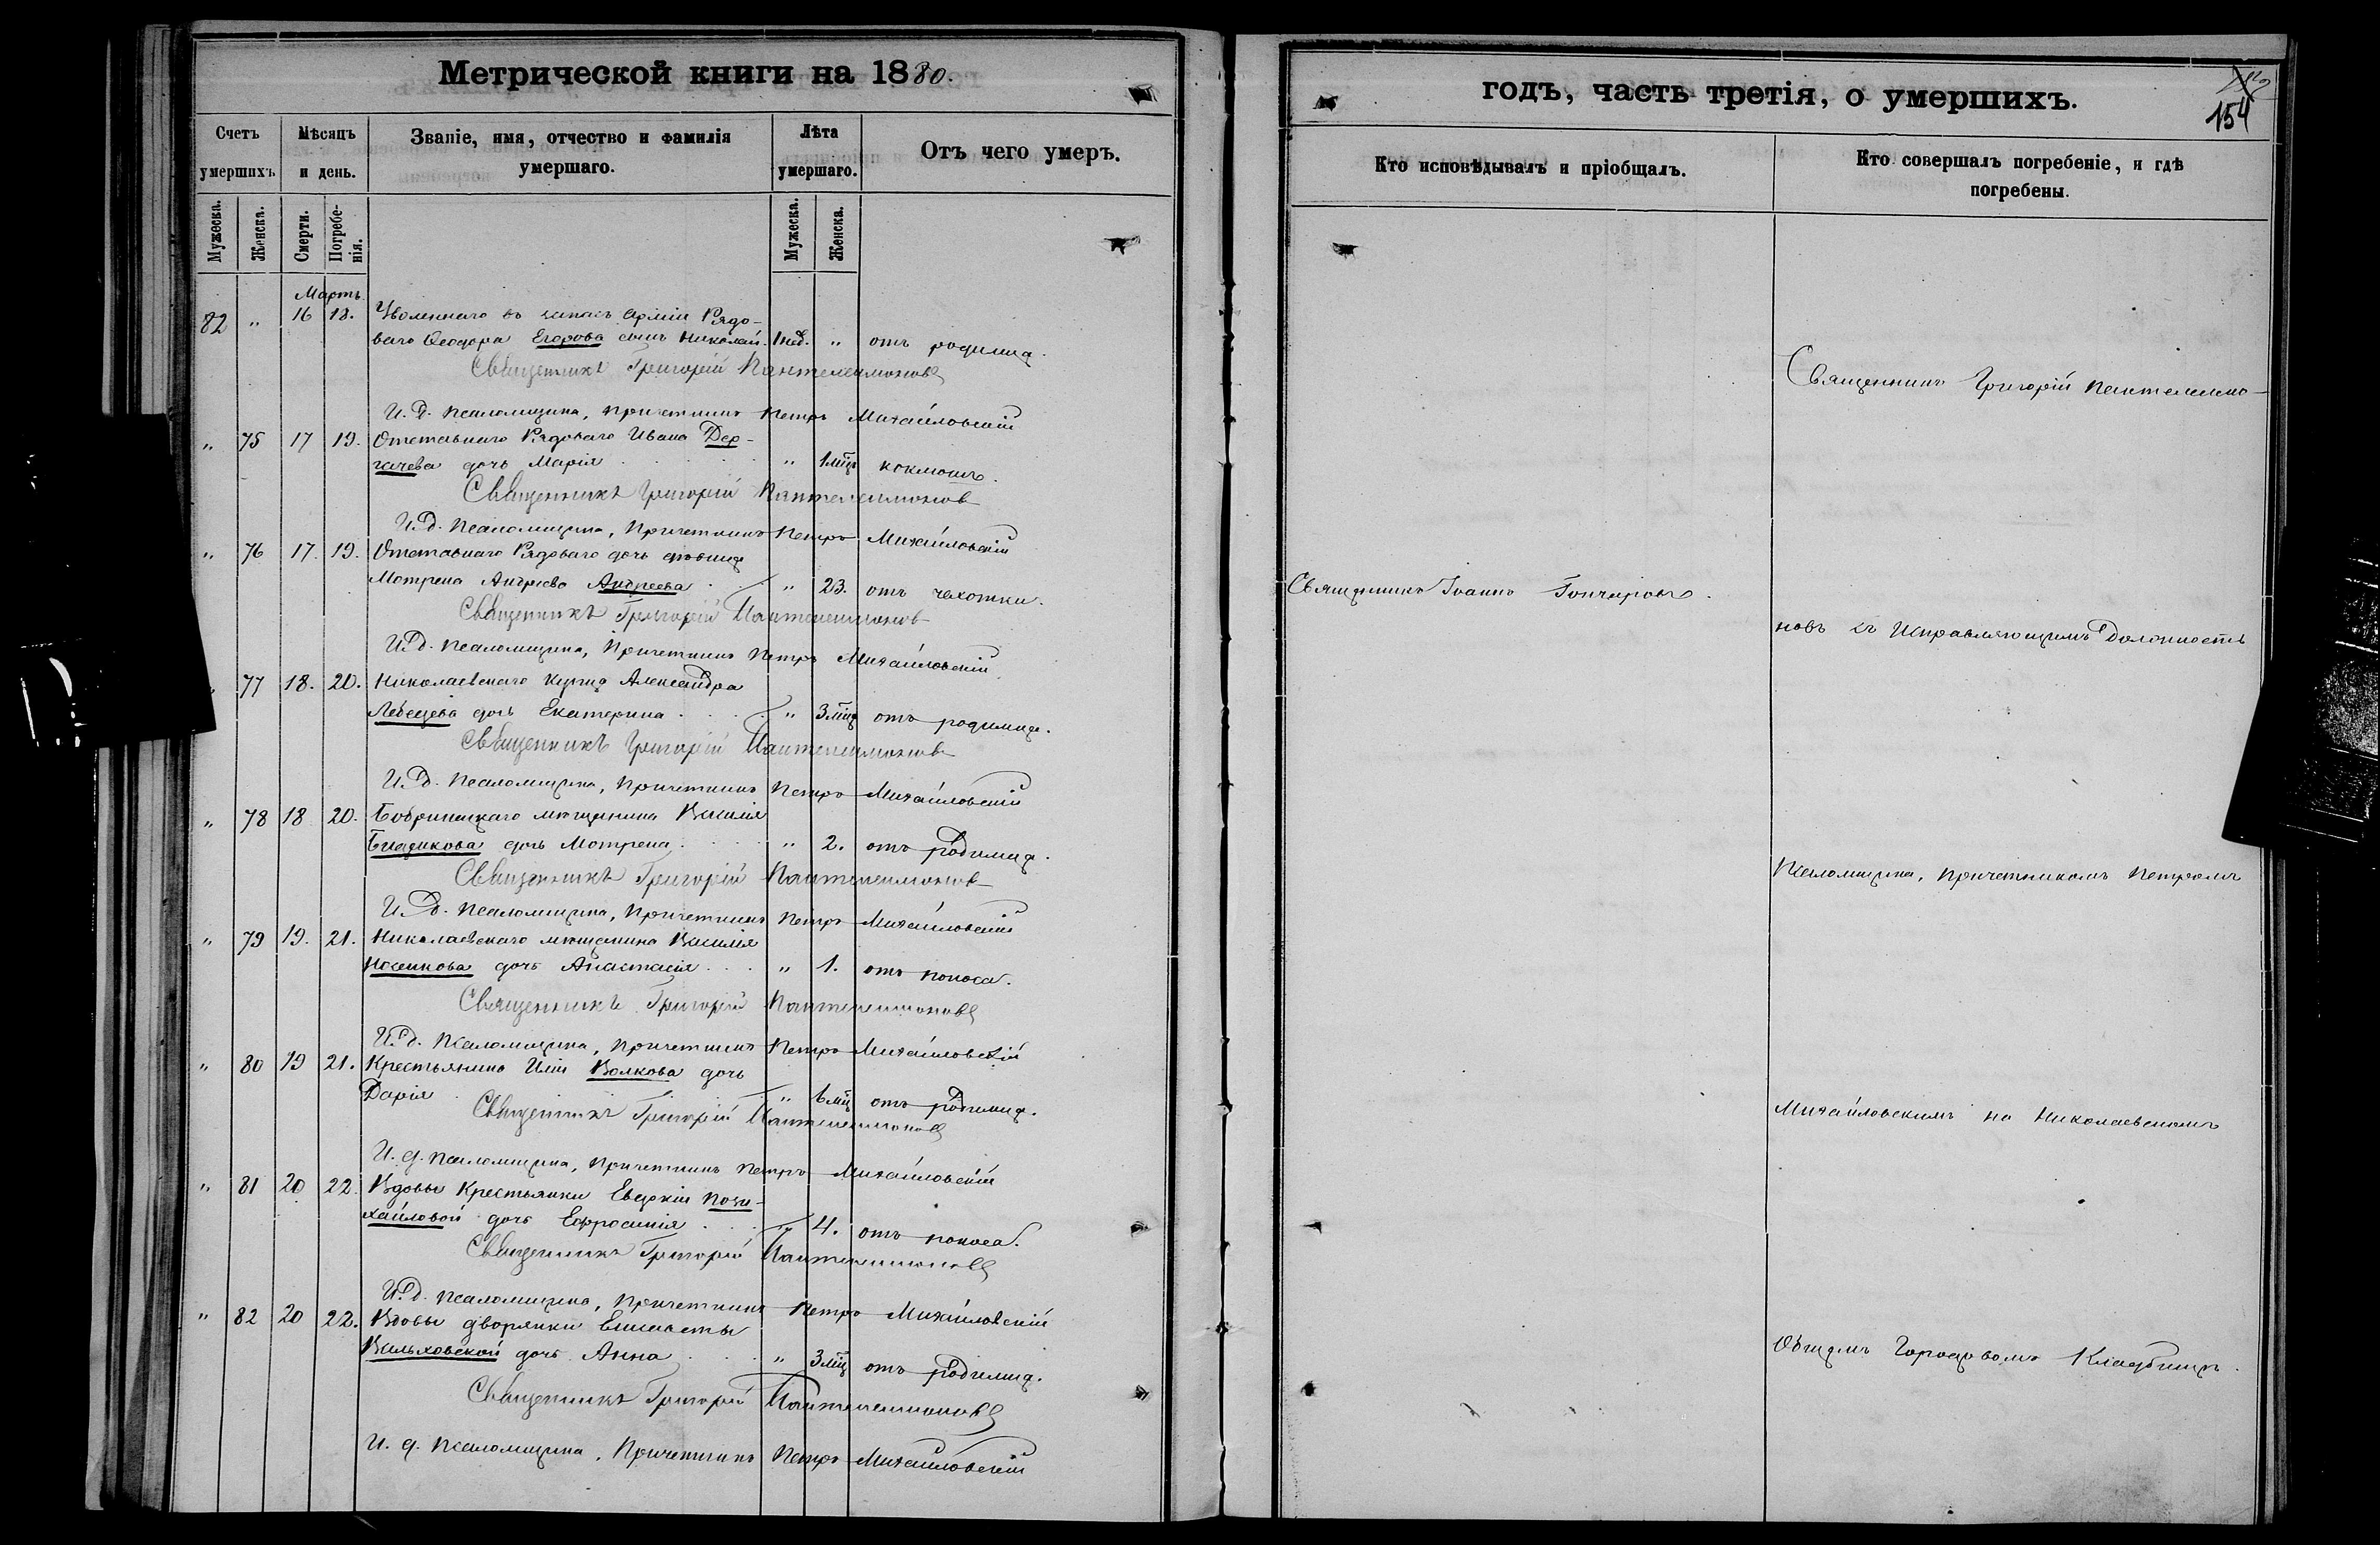 Метрической книги на 1880.
Счетъ умершихъ
Мѣсяцъ и день.
Званіе, имя, отчество и фамилія умершаго.
Лѣта умершаго.
Отъ чего умеръ.
Мужеска.
Женска.
Смерти.
Погребенія.
Мужеска.
Женска.
Мартъ
82 " 16 18. Уволеннаго въ запасъ Арміи Рядо-
ваго Ѳеодора Егорова сынъ Николай. 1 нед. " отъ родимца.
Священникъ Григорій Пантелеимоновъ
И. д. Псаломщика, Причетникъ Петръ Михайловскій
" 75 17 19. Отставнаго Рядоваго Ивана Дер-
гачева дочь Марія " 1 мѣс. коклюшъ.
Священникъ Григорій Пантелеимоновъ
И. д. Псаломщика, Причетникъ Петръ Михайловскій
" 76 17. 19. Отставнаго Рядоваго дочь дѣвица
Мотрена Андреева Андреева " 23. отъ чахотки.
Священникъ Григорій Пантелеимоновъ
И. д. Псаломщика, Причетникъ Петръ Михайловскій
77 18. 20. Николаевскаго купца Александра
Лебедева дочь Екатерина " 3 мѣс. отъ родимца.
Священникъ Григорій Пантелеимоновъ
И. д. Псаломщика, Причетникъ Петръ Михайловскій
" 78 18 20. Бобринецкаго мѣщанина Василія
дочь Мотрена " 2. отъ родимца.
Священникъ Григорій Пантелеимоновъ
И. д. Псаломщика, Причетникъ Петръ Михайловскій
" 79 19. 21. Николаевскаго мѣщанина Василія
Носикова дочь Анастасія " 1. отъ поноса.
Священникъ Григорій Пантелеимоновъ
И. д. Псаломщика, Причетникъ Петръ Михайловскій
" 80 19 21. Крестьянина Иліи Волкова дочь
Дарія " мѣс. отъ родимца.
Священникъ Григорій Пантелеимоновъ
И. д. Псаломщика, Причетникъ Петръ Михайловскій
" 81 20 22. Вдовы Крестьянки Евдокіи
дочь Ефросинія " 4. отъ поноса.
Священникъ Григорій Пантелеимоновъ
И. д. Псаломщика, Причетникъ Петръ Михайловскій
" 82 20 22. Вдовы дворянки Елисаветы
Вальховской дочь Анна " 3 мѣс. отъ родимца.
Священникъ Григорій Пантелеимоновъ
И. д. Псаломщика, Причетникъ Петръ Михайловскій
годъ, часть третія, о умершихъ.
154
Кто исповѣдывалъ и пріобщалъ.
Кто совершалъ погребеніе, и гдѣ погребены.
Священникъ Іоаннъ Гончаровъ.
Священникъ Григорій Пантелеимо-
новъ съ Исправляющимъ Должность
Псаломщика, Причетникомъ Петромъ
Михайловскимъ на Николаевскомъ
Общемъ Городовомъ Кладбищѣ.